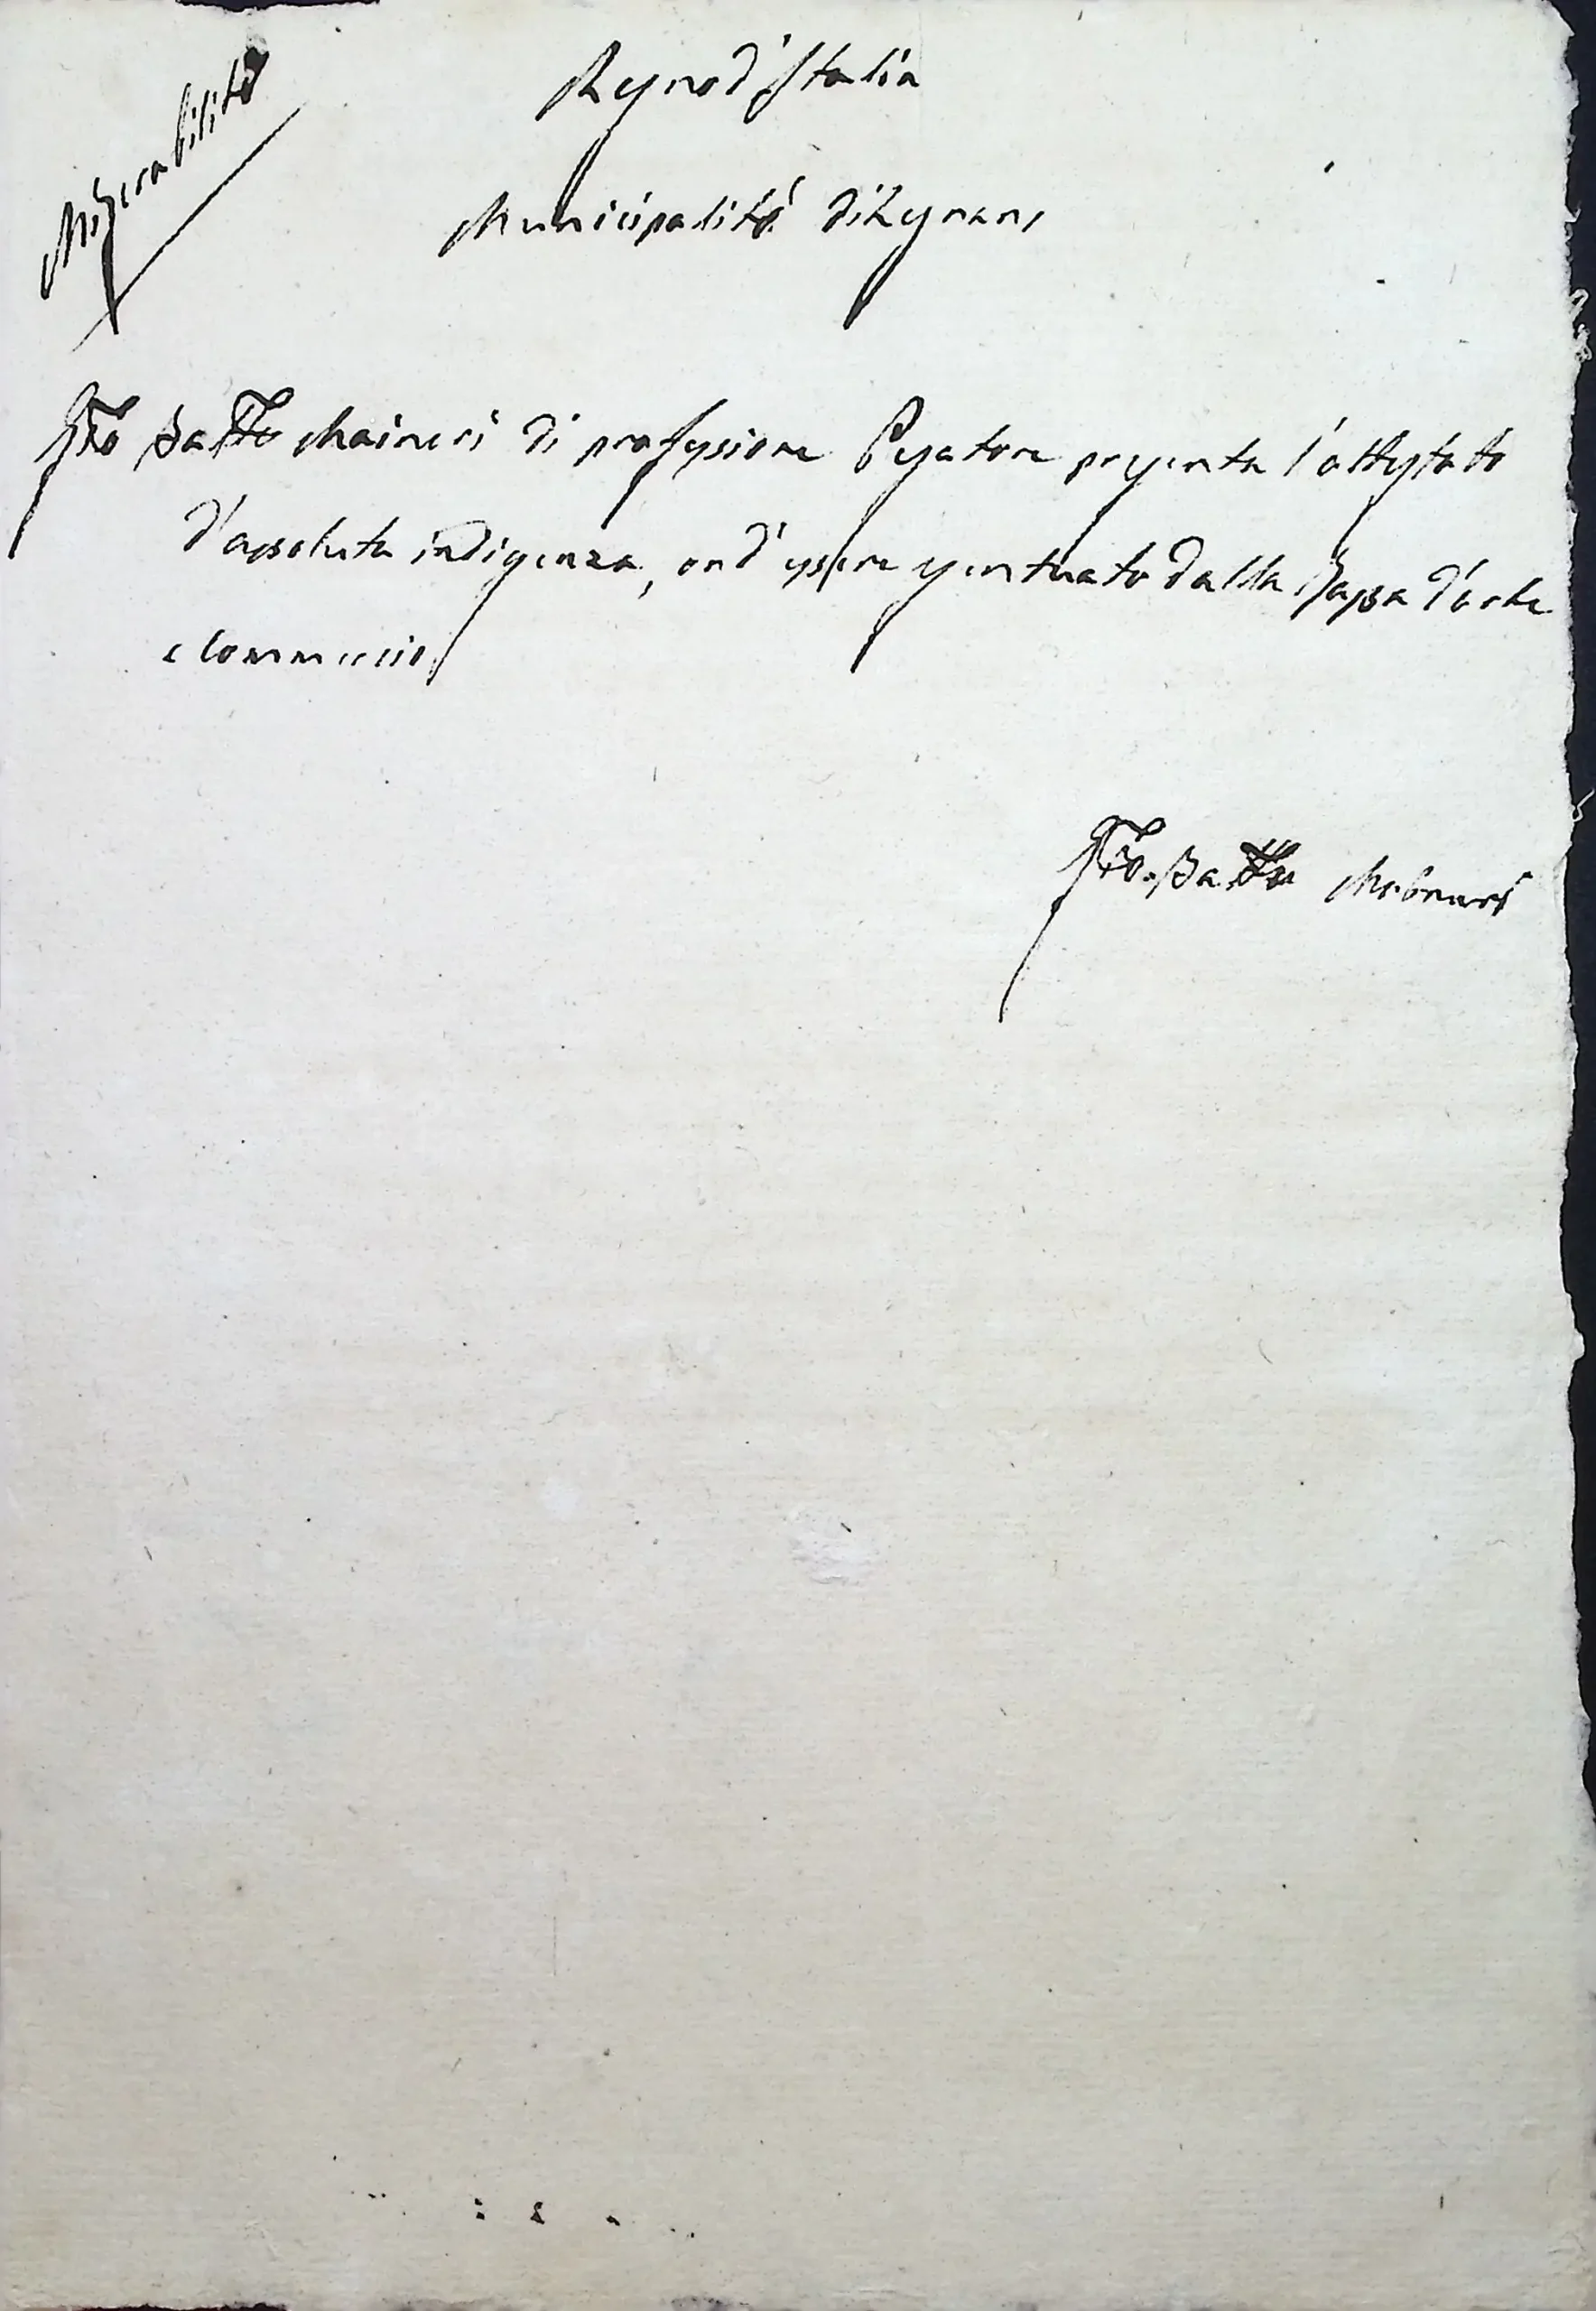 Miserabilità
Regno d'Italia
Municipalità di Legnano
Gio Batta Maineri di professione Pesatore presenta l'attestato
d'assoluta indigenza, ond'essere esentuato dalla Tassa d'arte
e Commercio
Gio. Batta Maineri